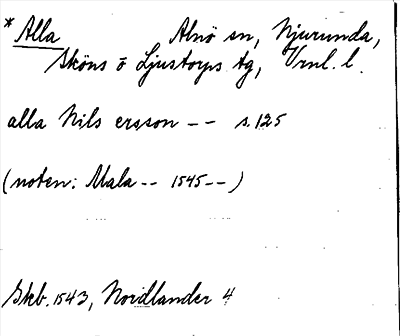 * Alla Alnö sn, Njurunda,
Sköns o Ljustorps tg, Vrnl. l.
alla Nils ersson -- s. 125
(noten: Mala -- 1545 --)
Skb. 1543, Nordlander 4